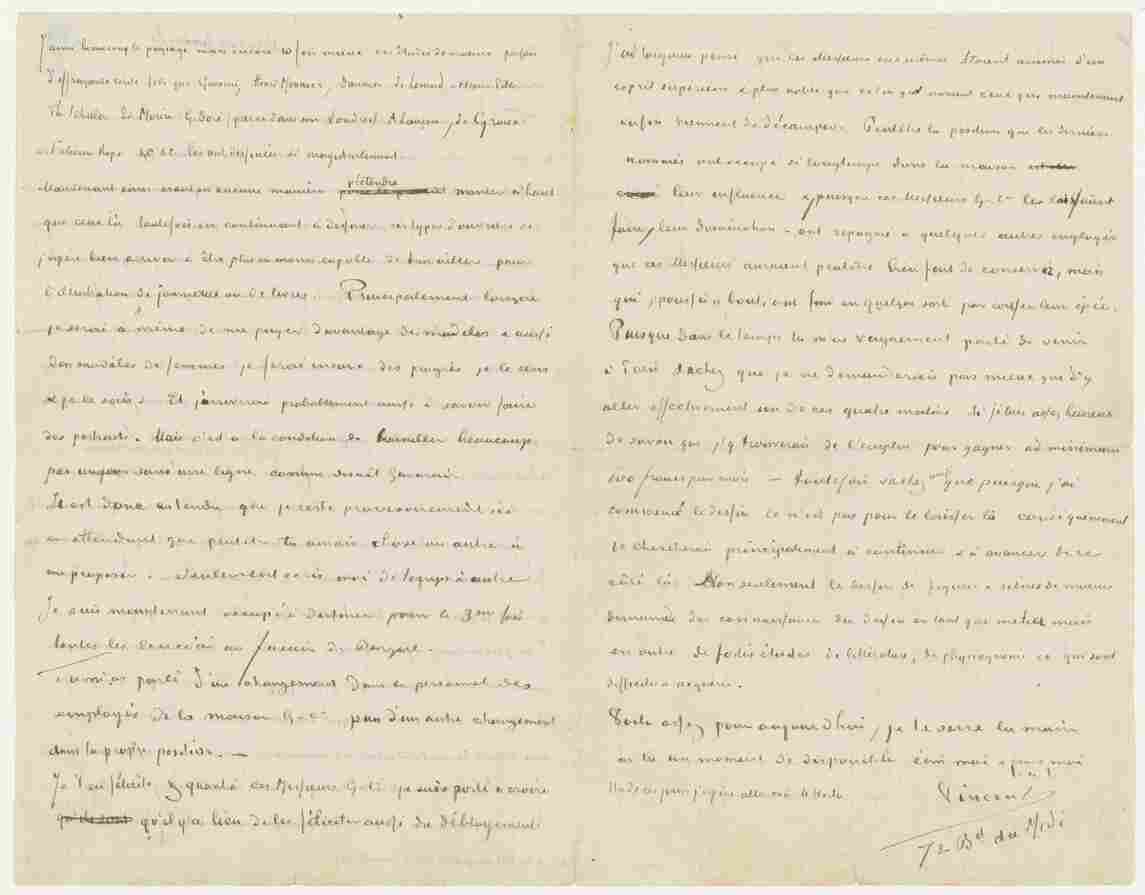 J'aime beaucoup le paysage mais encore 10 fois mieux ces études de mœurs parfois
d'effrayante verité tels que Gavarni, Henri Monnier, Daumier, de Lemud, Henri Pille,
Th Schuler, Ed Morin, G. Doré (par ex dans son Londres) A. Lançon, de Groux,
Félicien Rops &c &c. les ont dessinées si magistralement.
Maintenant sans aucune manière prétendre monter si haut
que ceux là toutefois en continuant à dessiner ces types d'ouvriers &c
j'espère bien arriver à être plus ou moins capable de travailler pour
l'illustration de journaux ou de livres. Principalement lorsque
je serai à même de me payer davantage de modèles & aussi
des modèles de femmes je ferai encore des progrès, je le sens
& je le sais. Et j'arriverai probablement aussi à savoir faire
des portraits. Mais c'est à la condition de travailler beaucoup,
pas un jour sans une ligne comme disait Gavarni.
Il est donc entendu que je reste provisoirement ici
en attendant que peutêtre tu aurais chose ou autre à
me proposer. Seulement écris moi de temps à autre
Je suis maintenant occupé à dessiner pour la 3me fois
toutes les exercices au fusain de Bargue.
Tu m'as parlé d'un changement dans le personnel des
employés de la maison G & Cie, puis d'un autre changement
dans ta propre position. —
Je t'en félicite & quant à ces Messieurs G & Cie je suis porté à croire
qu'ils sont qu'il y a lieu de les féliciter aussi du débloyement
J'ai toujours pensé que ces Messieurs eux mêmes étaient animés d'un
esprit supérieur & plus noble que celui qui animait ceux qui maintenant
enfin viennent de décamper. Peutêtre la position que les derniers
nommés ont occupé si longtemps dans la maison
leur influence & puisque ces Messieurs G & Cie les laissaient
faire, leur domination —, ont repugné à quelques autres employés
que ces Messieurs auraient peutêtre bien fait de conserver, mais
qui, poussés à bout, ont fini en quelque sorte par casser leur épée.
Puisque dans le temps tu m'as vaguement parlé de venir
à Paris sachez que je ne demanderais pas mieux que d'y
aller effectivement un de ces quatre matins si j'étais assez heureux
de savoir que j'y trouverais de l'emploi pour gagner au minimum
100 francs par mois — toutefois sachez aussi que puisque j'ai
commencé le dessin ce n'est pas pour le laisser là conséquemment
je chercherais principalement à continuer & à avancer de ce
côté là. Non seulement le dessin de figures & scènes de mœurs
demande des connaissances du dessin en tant que métier mais
en outre de fortes études de littérature, de physiognomie &c qui sont
difficiles à acquérir.
Voilà assez pour aujourd'hui, je te serre la main
as tu un moment de disponible écris moi & crois moi
t. à t.
Un de ces jours j'espère aller voir M Horta
Vincent
72 Bd du Midi